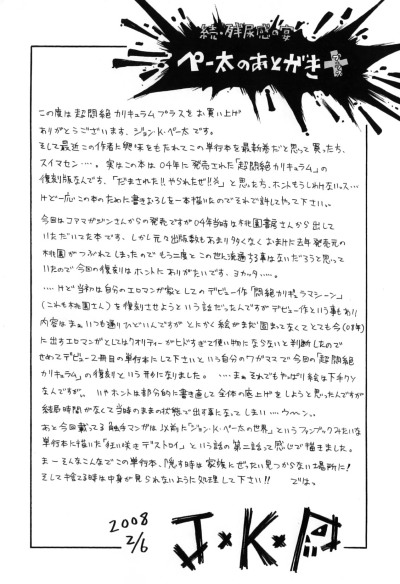 続・残尿感の宴
ペー太のあとがき+
この度は超悶絶カリキュラムプラスをお買い上げ
ありがとうございます、ジョン・K・ペー太です。
そして最近この作者に興味をもたれてこの単行本を最新巻だと思って買った方、
スイマセン‥‥。実はこの本は04年に発売された「超悶絶カリキュラム」の
復刻版なんです、「だまされた!!やられたぜ!!」と思った方、ホントもうしわけないッス…
けど一応この本のために書きおろしを一本描いたのでそれで許してやって下さい。
今回はコアマガジンさんからの発売ですが04年当時は桃園書房さんから出して
いただいてた本です、しかし元々出版数もあまり多くなくおまけに去年発売元の
桃園がつぶれてしまったのでもう二度とこの世に流通する事はないだろうと思って
いたので今回の復刻はホントにありがたいです、ヨカッタ‥‥。
‥‥けど当初は自分のエロマンガ家としてのデビュー作「悶絶カリキュラマシーン」
(これも桃園さん)を復刻させようという話だったんですがデビュー作という事もあり
内容はまぁいつも通りひどいんですがとにかく絵がまだ固まってなくてとても今(08年)
に出すエロマンガとしてはクオリティーがヒドすぎて使い物にならないと判断したので
せめてデビュー2冊目の単行本にして下さいという自分のワガママで今回の「超悶絶
カリキュラム」の復刻という形になりました。‥‥まぁそれでもやっぱり絵は下手クソ
なんですが。いやホントは部分的に描き直して全体の底上げをしようと思ったんですが
結局時間がなくて当時のままの状態で出す事になってしまい‥‥ウヘ〜ン。
あと今回載ってる触手マンガは以前に「ジョン・K・ペー太の世界」というファンブックみたいな
単行本に描いた「狂い咲きデストロイ」という話の第二話って感じで描きました。
まーそんなこんなでこの単行本、隠す時は家族にぜったい見つからない場所に!
そして捨てる時は中身が見られないように処理して下さい!! では。
2008
2/6
J×K×P